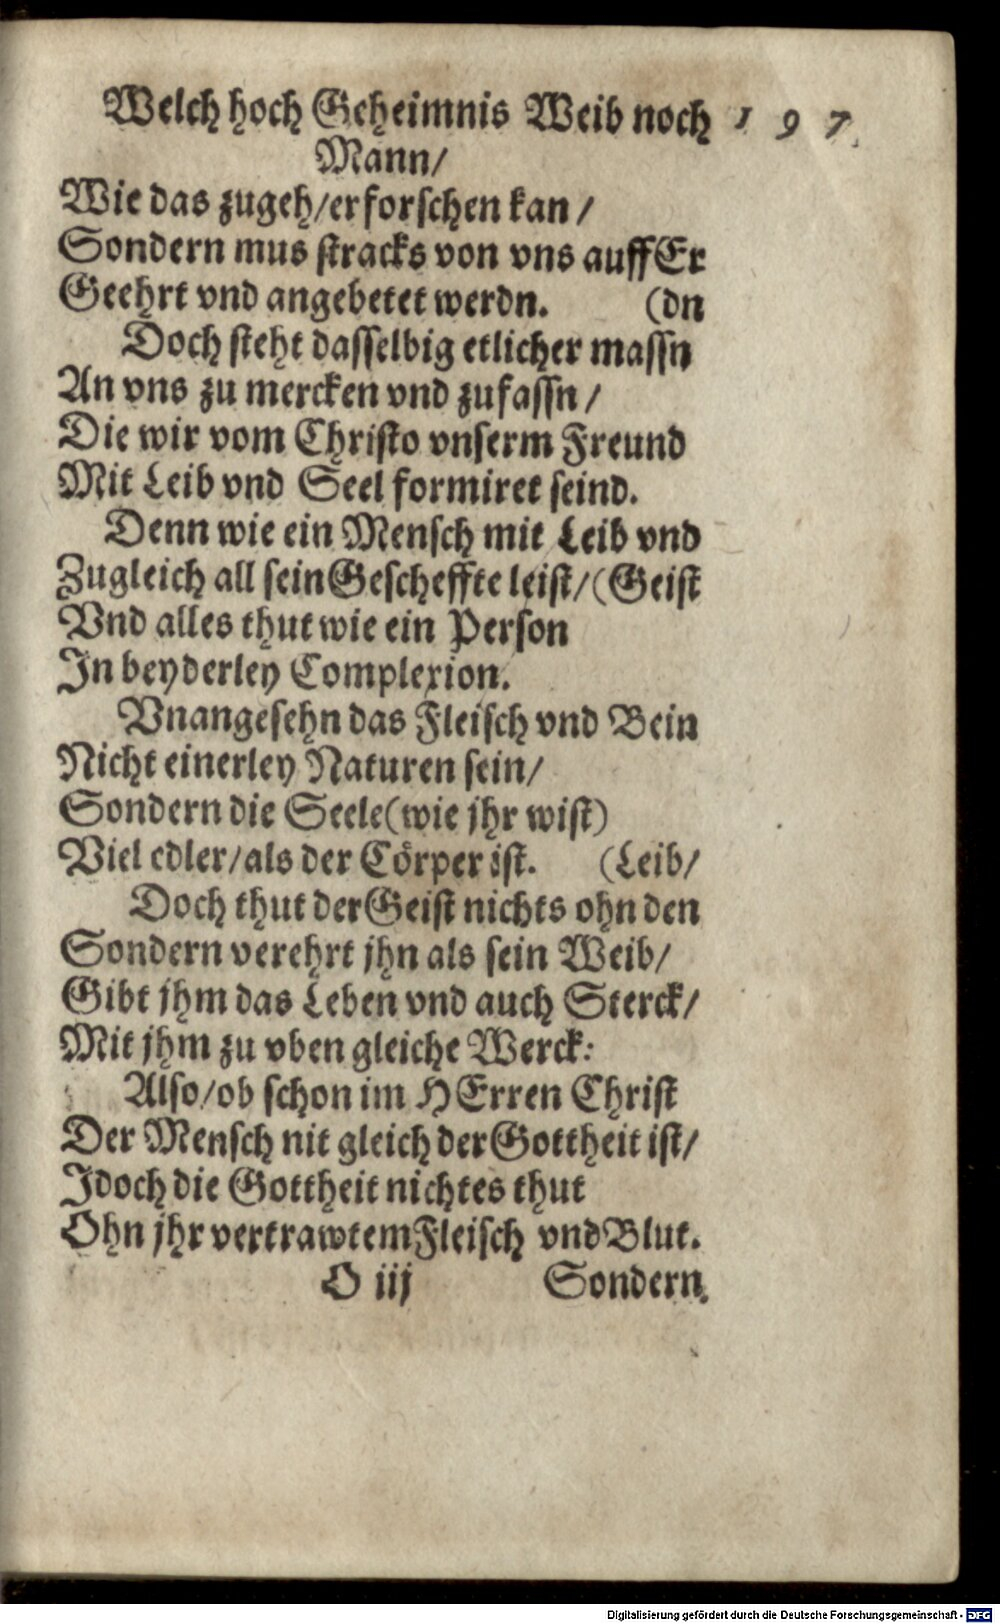 Welch hoch Geheimnis Weib noch 197.
Mann/
Wie das zugeh/erforschen kan/
Sondern mus stracks von vns auff Er
Geehrt vnd angebetet werdn. (dn
Doch steht dasselbig etlicher massn
An vns zu mercken vnd zufassn/
Die wir vom Christo vnserm Freund
Mit Leib vnd Seel formiret seind.
Denn wie ein Mensch mit Leib vnd
Zugleich all sein Gescheffte leist/(Geist
Vnd alles thut wie ein Person
In beyderley Complexion.
Vnangesehn das Fleisch vnd Bein
Nicht einerley Naturen sein/
Sondern die Seele(wie jhr wist)
Viel edler/als der Cörper ist. (Leib/
Doch thut der Geist nichts ohn den
Sondern verehrt jhn als sein Weib/
Gibt jhm das Leben vnd auch Sterck/
Mit jhm zu vben gleiche Werck:
Also/ob schon im HErren Christ
Der Mensch nit gleich der Gottheit ist/
Jdoch die Gottheit nichtes thut
Ohn jhr vertrawtem Fleisch vnd Blut.
O iij Sondern
Digitalisierung gefördert durch die Deutsche Forschungsgemeinschaft - DFG